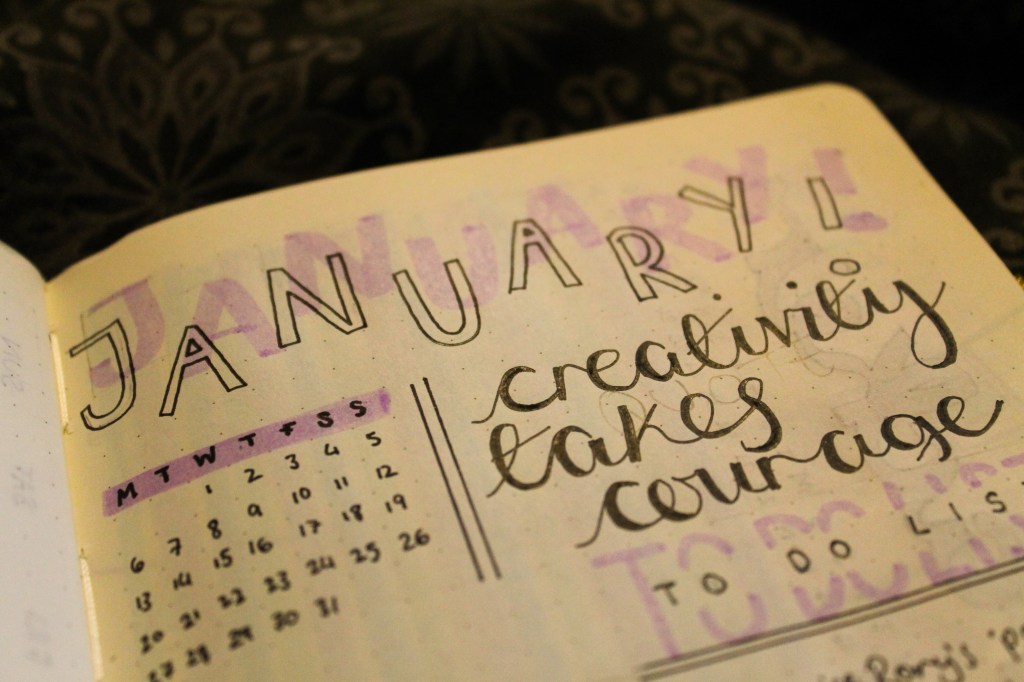 JANUARY!
JANUARY!
M T W T F S S
1 2 3 4 5
6 7 8 9 10 11 12
13 14 15 16 17 18 19
20 21 22 23 24 25 26
27 28 29 30 31
creativity
takes
courage
TO DO LIST
TO DO LIST
Rory's